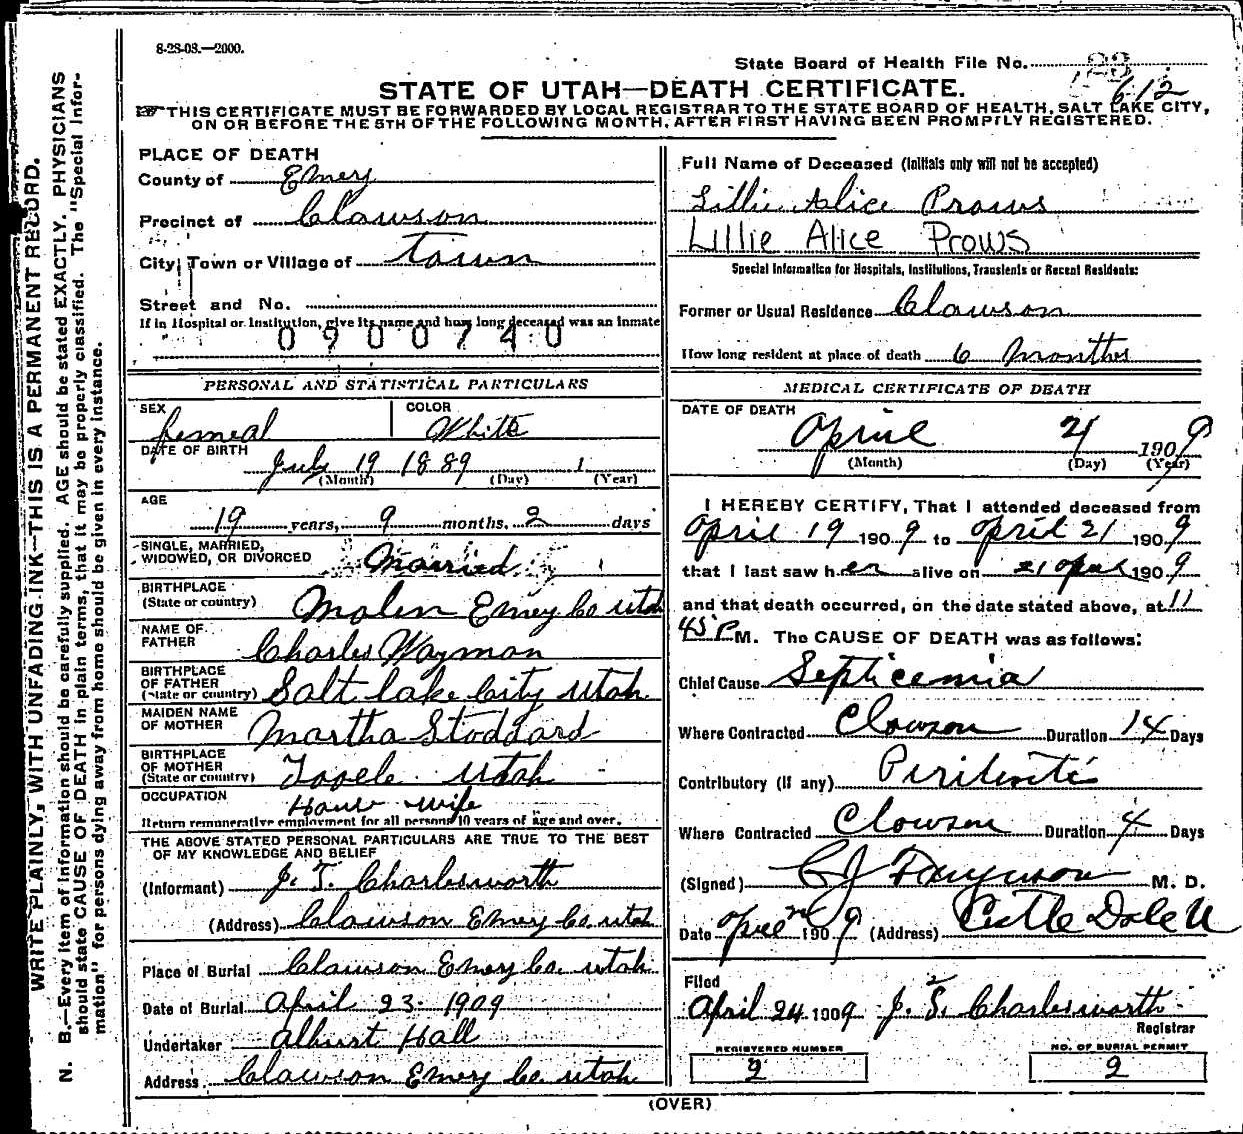 8-28-08.—2000.
State Board of Health File No. 23
612
STATE OF UTAH—DEATH CERTIFICATE.
THIS CERTIFICATE MUST BE FORWARDED BY LOCAL REGISTRAR TO THE STATE BOARD OF HEALTH, SALT LAKE CITY,
ON OR BEFORE THE 5TH OF THE FOLLOWING MONTH, AFTER FIRST HAVING BEEN PROMPTLY REGISTERED.
WRITE PLAINLY, WITH UNFADING INK—THIS IS A PERMANENT RECORD.
N. B.—Every item of information should be carefully supplied. AGE should be stated EXACTLY. PHYSICIANS
should state CAUSE OF DEATH in plain terms, that it may be properly classified. The "Special Infor-
mation" for persons dying away from home should be given in every instance.
PLACE OF DEATH
County of Emery
Precinct of Clawson
City, Town or Village of Town
Street and No.
If in Hospital or Institution, give its name and how long deceased was an inmate
0900740
PERSONAL AND STATISTICAL PARTICULARS
SEX femeal COLOR White
DATE OF BIRTH July 19 1889
(Month) (Day) (Year)
AGE
19 years, 9 months, 2 days
SINGLE, MARRIED,
WIDOWED, OR DIVORCED Married
BIRTHPLACE
(State or country) Molen Emery Co utah
NAME OF
FATHER Charles Wayman
BIRTHPLACE
OF FATHER
(State or country) Salt lake City utah
MAIDEN NAME
OF MOTHER Martha Stoddard
BIRTHPLACE
OF MOTHER
(State or country) Tooele utah
OCCUPATION House wife
Return remunerative employment for all persons 10 years of age and over.
THE ABOVE STATED PERSONAL PARTICULARS ARE TRUE TO THE BEST
OF MY KNOWLEDGE AND BELIEF
(Informant) J. T. Charlesworth
(Address) Clawson Emery Co. utah
Place of Burial Clawson Emery Co. utah
Date of Burial April 23. 1909
Undertaker Alburt Hall
Address. Clawson Emery Co. utah
Full Name of Deceased (Initials only will not be accepted)
Lillie Alice Prows
LILLIE ALICE PROWS
Special Information for Hospitals, Institutions, Transients or Recent Residents:
Former or Usual Residence Clawson
How long resident at place of death 6 months
MEDICAL CERTIFICATE OF DEATH
DATE OF DEATH
April 21 1909
(Month) (Day) (Year)
I HEREBY CERTIFY, That I attended deceased from
April 19 1909 to April 21 1909
that I last saw her alive on 21 Apral 1909
and that death occurred, on the date stated above, at 11
45 P M. The CAUSE OF DEATH was as follows:
Chief Cause Septicemia
Where Contracted Clowson Duration 14 Days
Contributory (If any)
Where Contracted Clowson Duration 4 Days
(Signed) M. D.
Date 1909 (Address) Castle Dale U
Filed
April 24 1909 J. T. Charlesworth
Registrar
REGISTERED NUMBER NO. OF BURIAL PERMIT
2 2
(OVER)